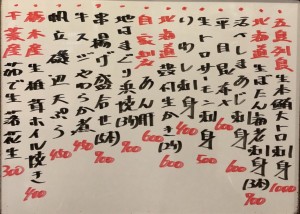 五島列島 生本鮪大トロ刺身 1000
北海道 生ぼたん海老刺身(3本) 900
しまあじ刺身 600
平目昆布〆刺身
生トロサーモン刺身 500
いわし刺身 400
北海道 殻付生かき(2ケ) 600
自家製 あん肝 600
地はまぐり浜焼(3ケ)
串揚げ盛合せ(5本) 900
牛スジやわらか煮 480
帆立磯辺天ぷら 480
栃木産 生椎茸ホイル焼き 400
千葉産 茹で生落花生 300